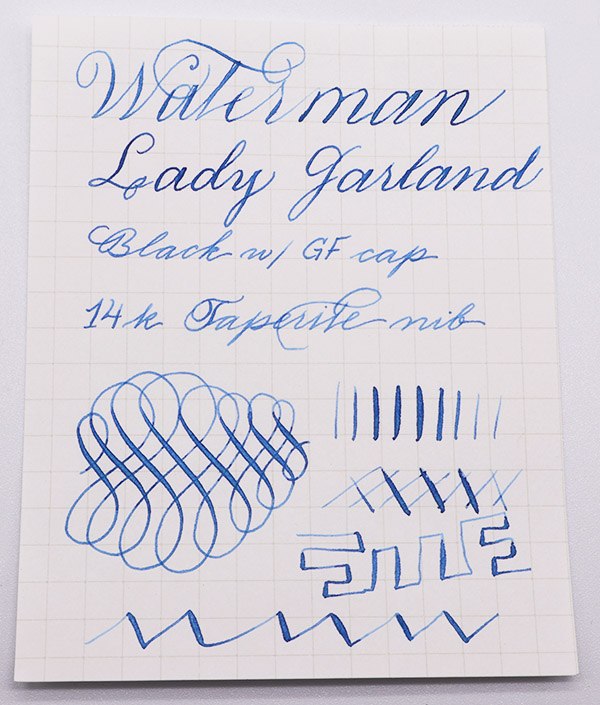 Waterman
Lady Garland
Black w/ GF cap
14k Taperite nib